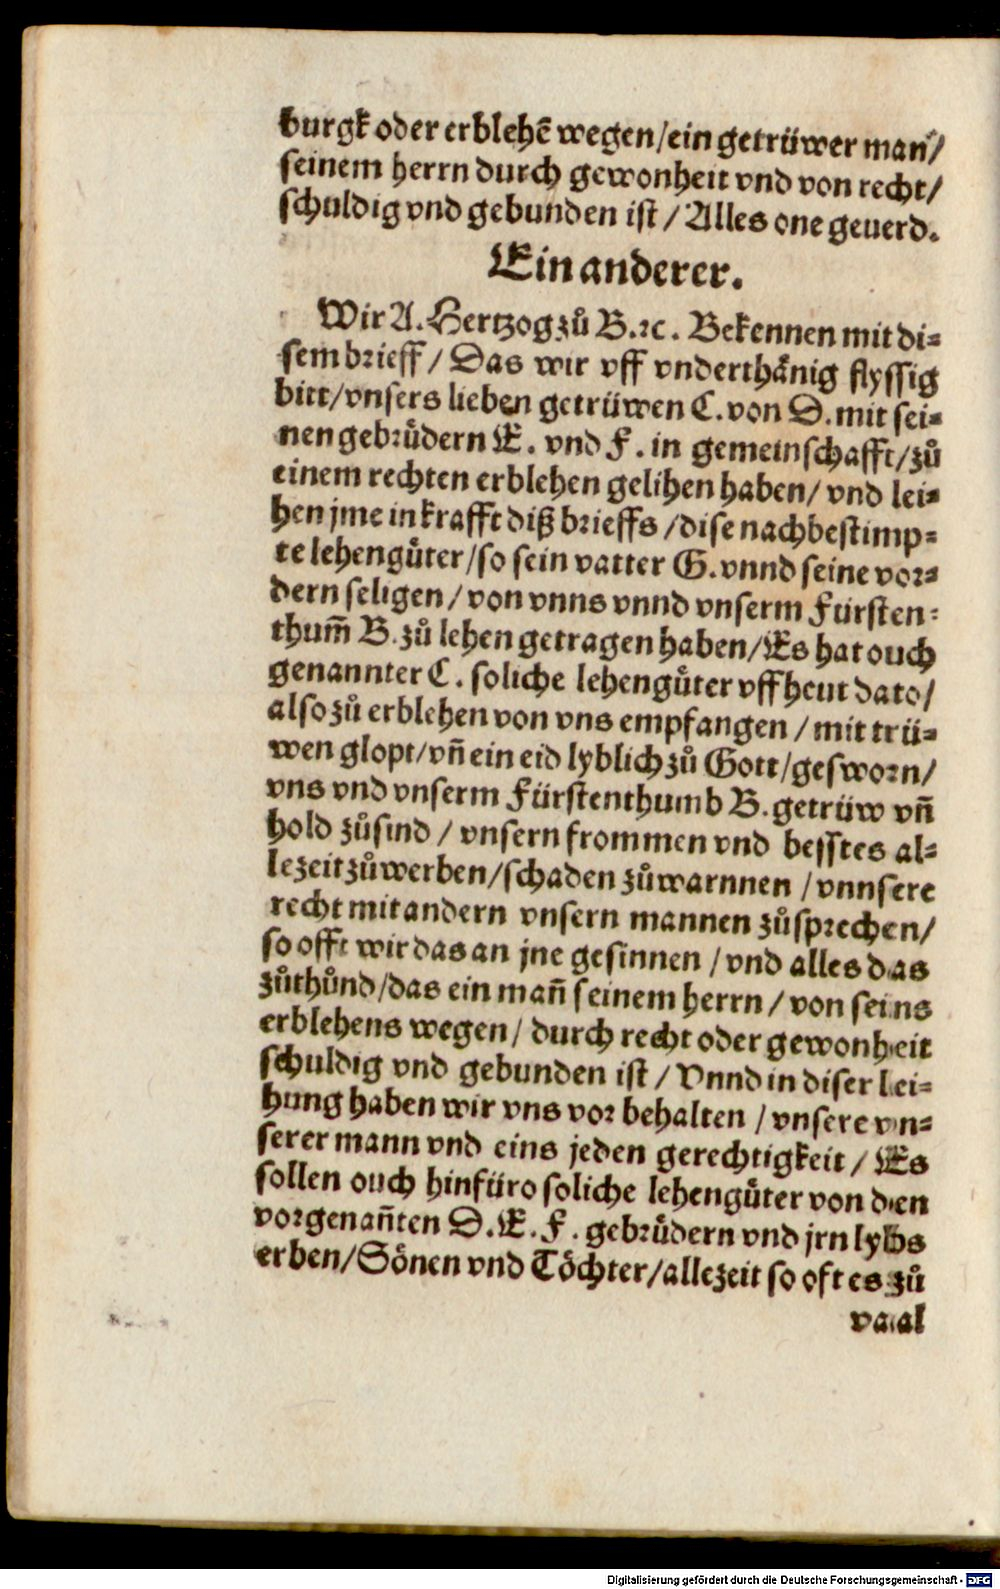 burgk oder erblehē wegen/ein getrüwer man/
seinem herrn durch gewonheit vnd von recht/
schuldig vnd gebunden ist/Alles one geuerd.
Ein anderer.
Wir A. Hertzog zů B.ꝛc. Bekennen mit di⸗
sem brieff/Das wir vff vnderthånig flyssig
bitt/vnsers lieben getrüwen C. von D. mit sei⸗
nen gebrůdern E. vnd F. in gemeinschafft/zů
einem rechten erblehen gelihen haben/vnd lei⸗
hen jme in krafft diß brieffs/dise nachbestimp⸗
te lehengůter/so sein vatter G. vnnd seine vor⸗
dern seligen/von vnns vnnd vnserm Fürsten⸗
thum̄ B. zů lehen getragen haben/Es hat ouch
genannter C. soliche lehengůter vff heut dato/
also zů erblehen von vns empfangen/mit trü⸗
wen glopt/vn̄ ein eid lyblich zů Gott/gesworn/
vns vnd vnserm Fürstenthumb B. getrüw vn̄
hold zůsind/vnsern frommen vnd besstes al⸗
lezeit zůwerben/schaden zůwarnnen/vnnsere
recht mit andern vnsern mannen zůsprechen/
so offt wir das an jne gesinnen/vnd alles das
zůthůnd/das ein man̄ seinem herrn/von seins
erblehens wegen/durch recht oder gewonheit
schuldig vnd gebunden ist/Vnnd in diser lei⸗
hung haben wir vns vor behalten/vnsere vn⸗
serer mann vnd eins jeden gerechtigkeit/Es
sollen ouch hinfüro soliche lehengůter von den
vorgenan̄ten D. E. F. gebrůdern vnd jrn lybs
erben/Sönen vnd Töchter/allezeit so oft es zů
vaal
Digitalisierung gefördert durch die Deutsche Forschungsgemeinschaft - DFG